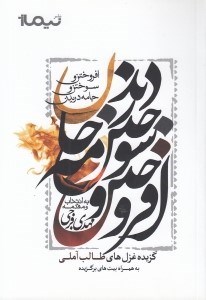 نیماژ
افروختن و
سوختن و
جامه دریدن
افروختن و سوختن و جامه دریدن
به انتخاب
و مقدمه
مهدی برجی
گزیده غزل‌های طالب آملی
به همراه بیت‌های برگزیده